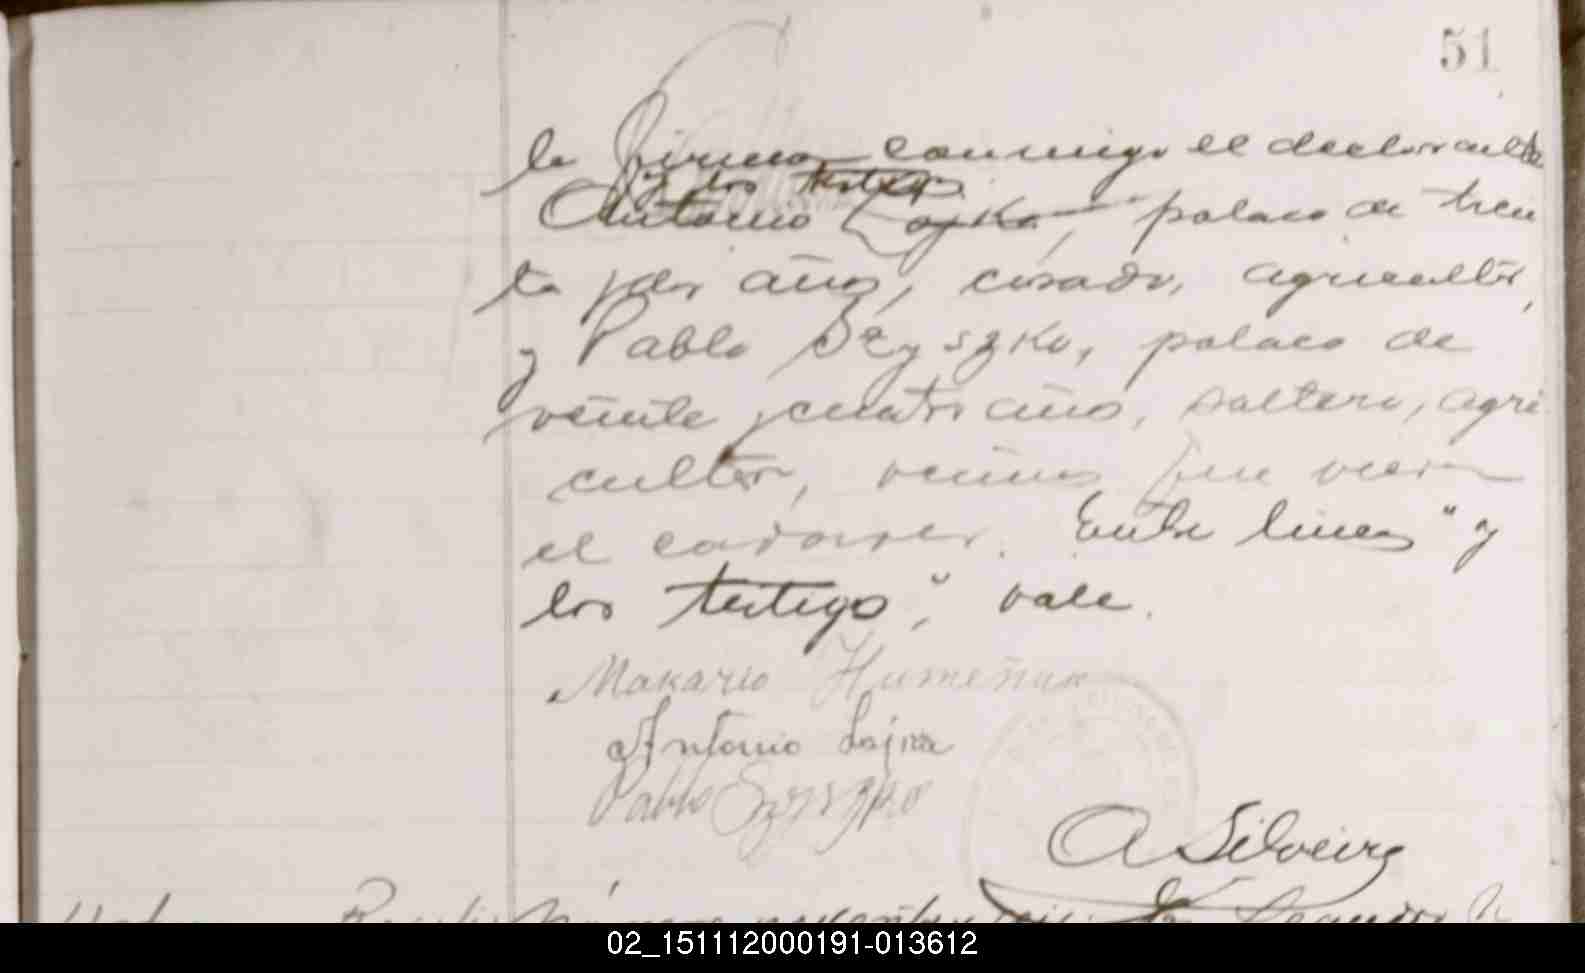 51
la firma conmigo el declarante
y los testigos
Antonio Lojko, polaco de trein
ta y dos años, casado, agricultor,
y Pablo Szyszko, polaco de
veinte y cuatro años, soltero, agri
cultor, vecinos que vieron
el cadaver. Entre lineas "y
los testigos", vale.
Makario Humeñuk
Antonio
Pablo Szyszko
A Silveira
02_151112000191-013612